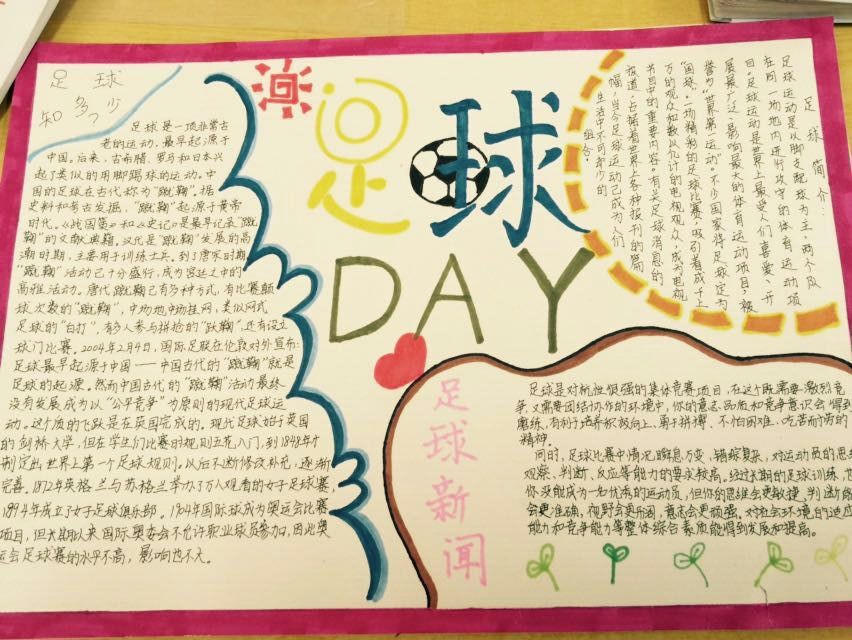 足球
知多少
足球是一项非常古
老的运动,最早起源于
中国,后来,古希腊、罗马和日本兴
起了类似的用脚踢球的运动。中
国的足球在古代称为“蹴鞠”。据
史料和考古发掘,“蹴鞠”起源于黄帝
时代。《战国策》和《史记》是最早记录“蹴
鞠”的文献典籍,汉代是“蹴鞠”发展的高
潮时期,主要用于训练士兵。到了唐宋时期,
“蹴鞠”活动已十分盛行,成为宫廷之中的
高雅活动。唐代蹴鞠已有多种方式,有比赛颠
球次数的“蹴鞠”,中场地中场挂网,类似网式
足球的“白打”,有多人参与拼抢的“跃鞠”,还有设立
球门比赛。2004年2月4日,国际足联在伦敦对外宣布:
足球最早起源于中国——中国古代的“蹴鞠”就是
足球的起源。然而中国古代的“蹴鞠”活动最终
没有发展成为以“公平竞争”为原则的现代足球运
动。这个质的飞跃是在英国完成的。现代足球始于英国
的剑桥大学,但在学生们比赛时规则五花八门,到1848年才
制定出世上第一个足球规则。以后不断修改补充,逐渐
完善。1872年英格兰与苏格兰举办3万人观看的女子足球赛,
1894年成立女子足球俱乐部。1904年国际球成为奥运会比赛
项目,但长期以来国际奥委会不允许职业球员参加,因此奥
运会足球赛的水平不高,影响也不大。
足球
DAY
足球简介:
足球运动是以脚支配球为主,两个队
在同一场地内进行攻守的体育运动项
目。足球运动是世界上最受人们喜爱、开
展最广泛、影响最大的体育运动项目,被
誉为“世界第一运动”。不少国家将足球定为
“国球”。一场精彩的足球比赛,吸引着成千上
万的观众和数以亿计的电视观众,成为电视
节目中的重要内容。有关足球消息的
报道,占据着世界上各种报刊的篇
幅,当今足球运动已成为人们
生活中不可却少的
组合。
足球新闻
足球是对抗性很强的集体竞赛项目,在这个既需要激烈竞
争又需要团结协作的环境中,你的意志、品质和竞争意识会得到
磨练,有利于培养积极向上、勇于拼搏、不怕困难、吃苦而劳的
精神。
同时,足球比赛中情况瞬息万变,错综复杂,对运动员的思
观察、判断、反应等能力的要求较高。经过长期的足球训练,
你没能成为一名优秀的运动员,但你的思维会更敏捷,判断能
会更准确,视野会更开阔,意志会更顽强,对社会环境的适应
能力和竞争能力等整体综合素质能得到发展和提高。